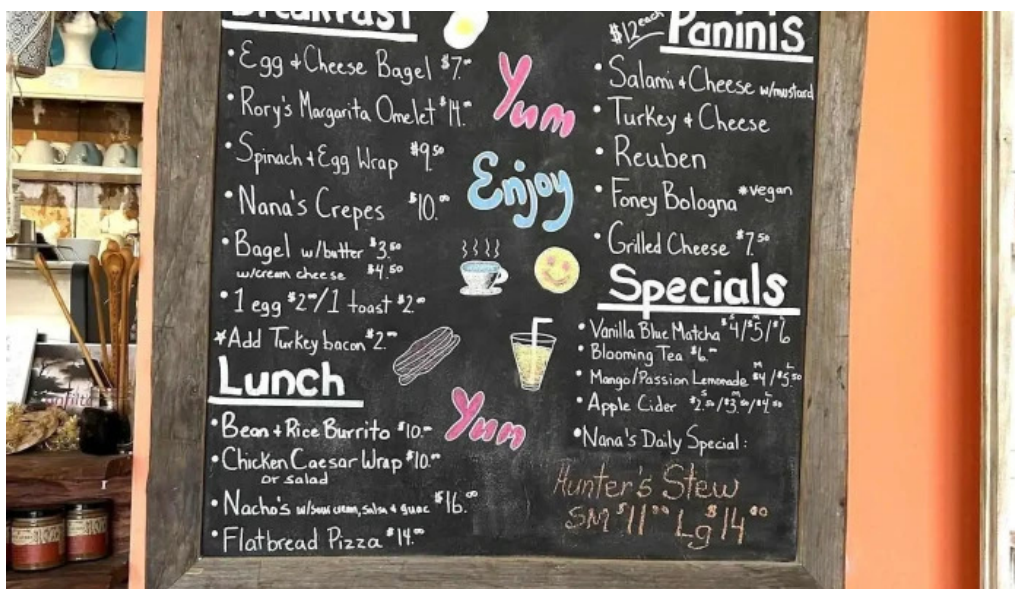 Breakfast
• Egg + Cheese Bagel $7.00
• Rory's Margarita Omelet $14.00
• Spinach + Egg Wrap $9.50
• Nana's Crepes $10.00
• Bagel w/butter $3.50
w/cream cheese $4.50
• 1 egg $2.00/1 toast $2.00
*Add Turkey bacon $2.00
Lunch
• Bean + Rice Burrito $10.00
• Chicken Caesar Wrap $10.00
or salad
• Nacho's w/sour cream, salsa + guac $16.00
• Flatbread Pizza $14.00
Yum
Enjoy
Yum
$12 each
Paninis
• Salami + Cheese w/mustard
• Turkey + Cheese
• Reuben
• Foney Bologna *vegan
• Grilled Cheese $7.50
Specials
• Vanilla Blue Matcha S $4/M $5/L $6
• Blooming Tea $6.00
• Mango/Passion Lemonade M $4/L $5.50
• Apple Cider S $2.50/M $3.50/L $4.50
• Nana's Daily Special:
Hunter's Stew
SM $11.00 Lg $14.00